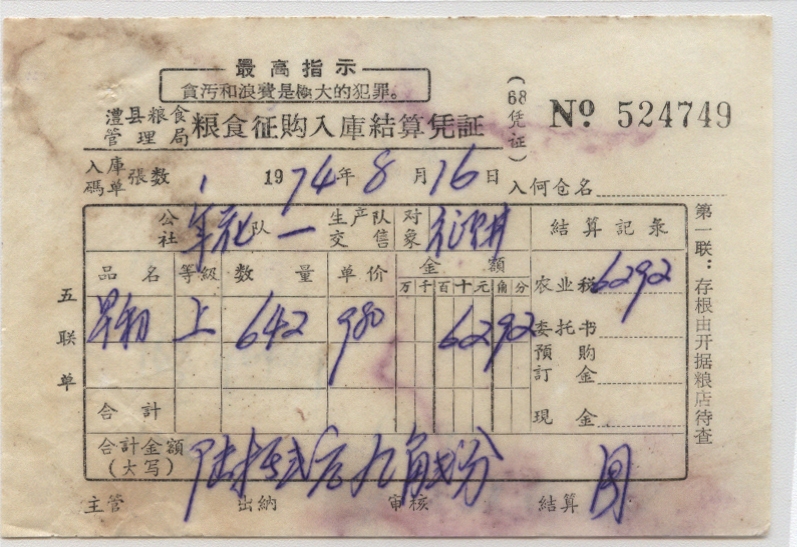 最高指示
貪汚和浪費是極大的犯罪。
澧县粮食管理局 粮食征购入庫結算凭証
(68凭证) № 524749
入庫碼单張数 1 1974年8月16日 入何仓名
公社 队 一 生产队交售 对象 結算記彔
品名 等級 数量 单价 金額 农业税 6292
万千百十元角分
上 642 980 6292 委托书
預购訂金
合計 現金
合計金額(大写) 陆拾弍元九角弍分
主管 出納 审核 結算
五联单
第一联：存根由开据粮店待查